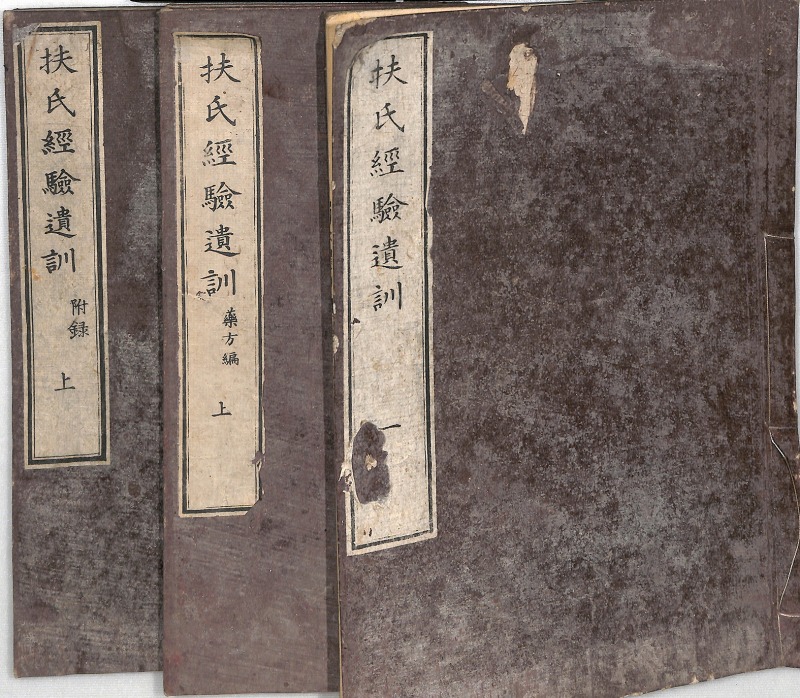 扶氏經驗遺訓 一
扶氏經驗遺訓 藥方編 上
扶氏經驗遺訓 附録 上